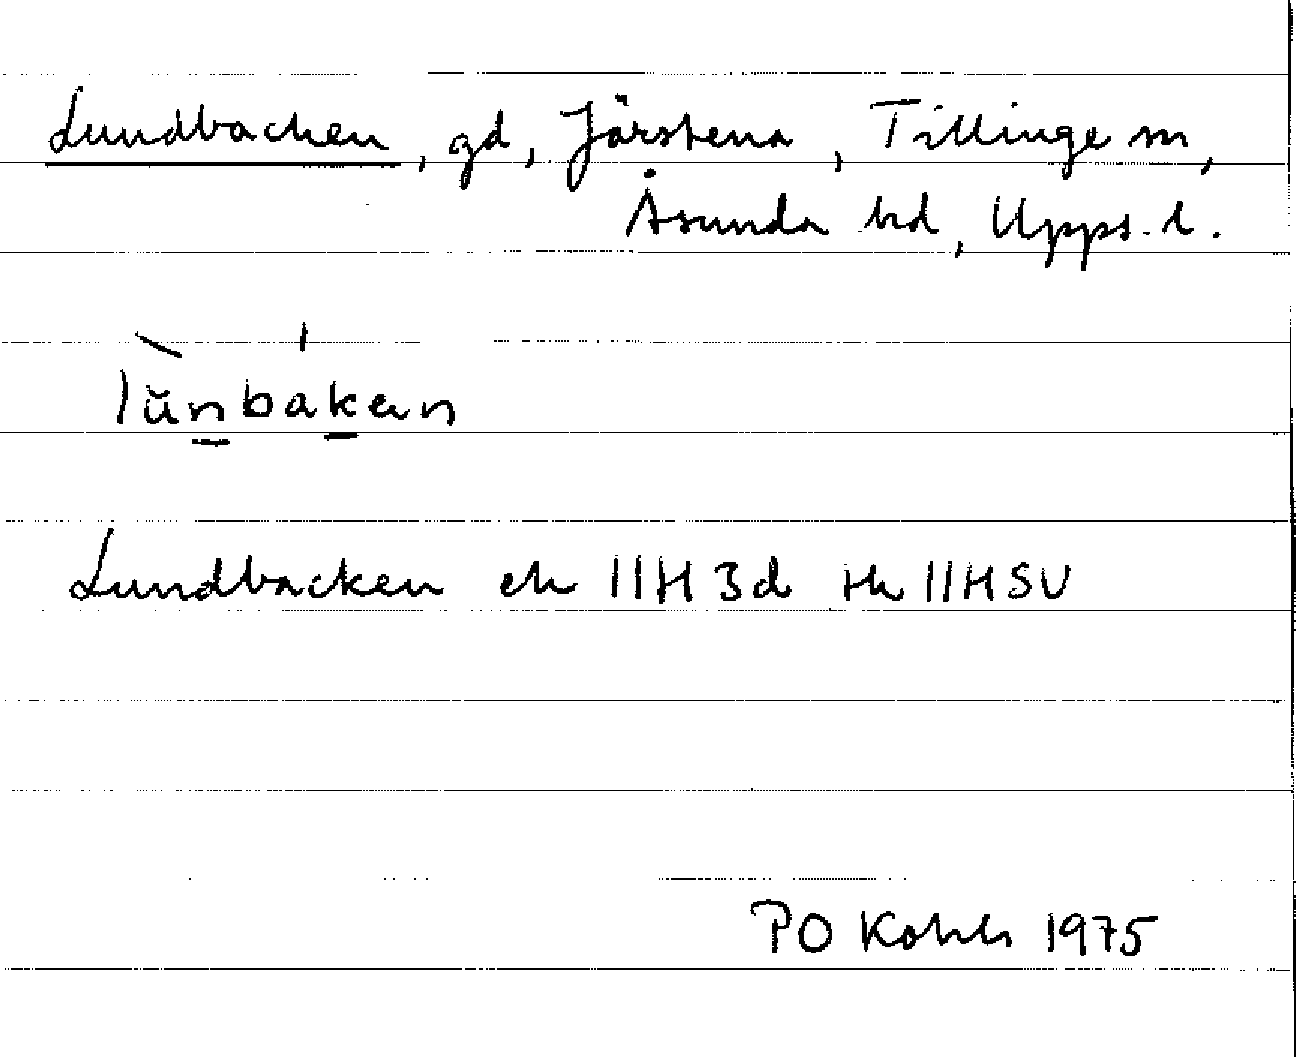 Lundbacken, gd, Järstena, Tillinge sn,
Åsunda hd, Upps. l.
lŭnbakan
Lundbacken ek 11H 3d Hk 11H SV
PO Kohls 1975